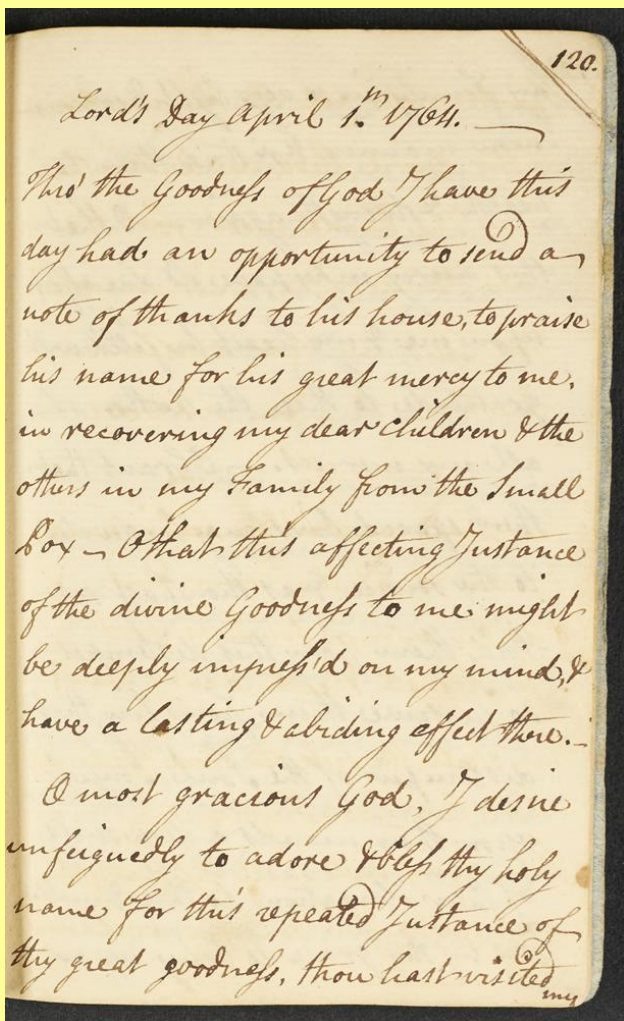 120.
Lord's Day April 1.m 1764. —
Thro' the Goodness of God I have this
day had an opportunity to send a
note of thanks to his house, to praise
his name for his great mercy to me,
in recovering my dear Children & the
others in my Family from the Small
Pox — O that this affecting Instance
of the divine Goodness to me might
be deeply impress'd on my mind, &
have a lasting & abiding effect there. —
O most gracious God, I desire
unfeignedly to adore & bless thy holy
name for this repeated Instance of
thy great goodness, thou hast visited
my